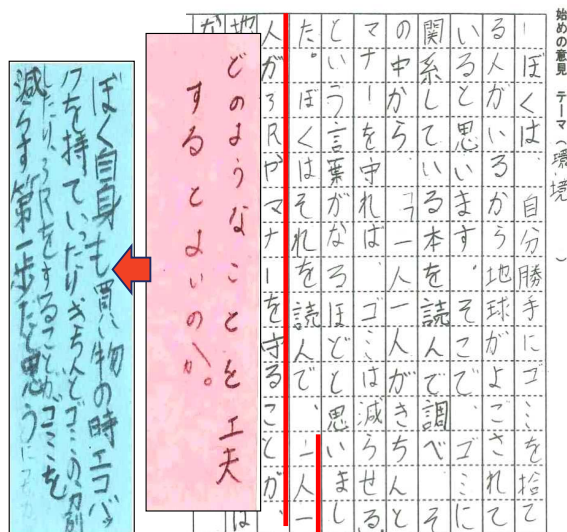 始めの意見 テーマ(環境 )
ぼくは、自分勝手にゴミを捨て
る人がいるから地球がよごされて
いると思います。そこで、ゴミに
関係している本を読んで調べ、そ
の中から「一人一人がきちんと
マナーを守れば、ゴミは減らせる
という言葉がなるほどと思いまし
た。ぼくはそれを読んで、一人一
人が3Rやマナーを守ることが、
地 は
な
どのようなことを工夫
するとよいのか。
ぼく自身も買い物の時エコバッ
グを持ていったりきちんとゴミの分別
したり、3Rをすることがゴミを
減らす第一歩だと思う